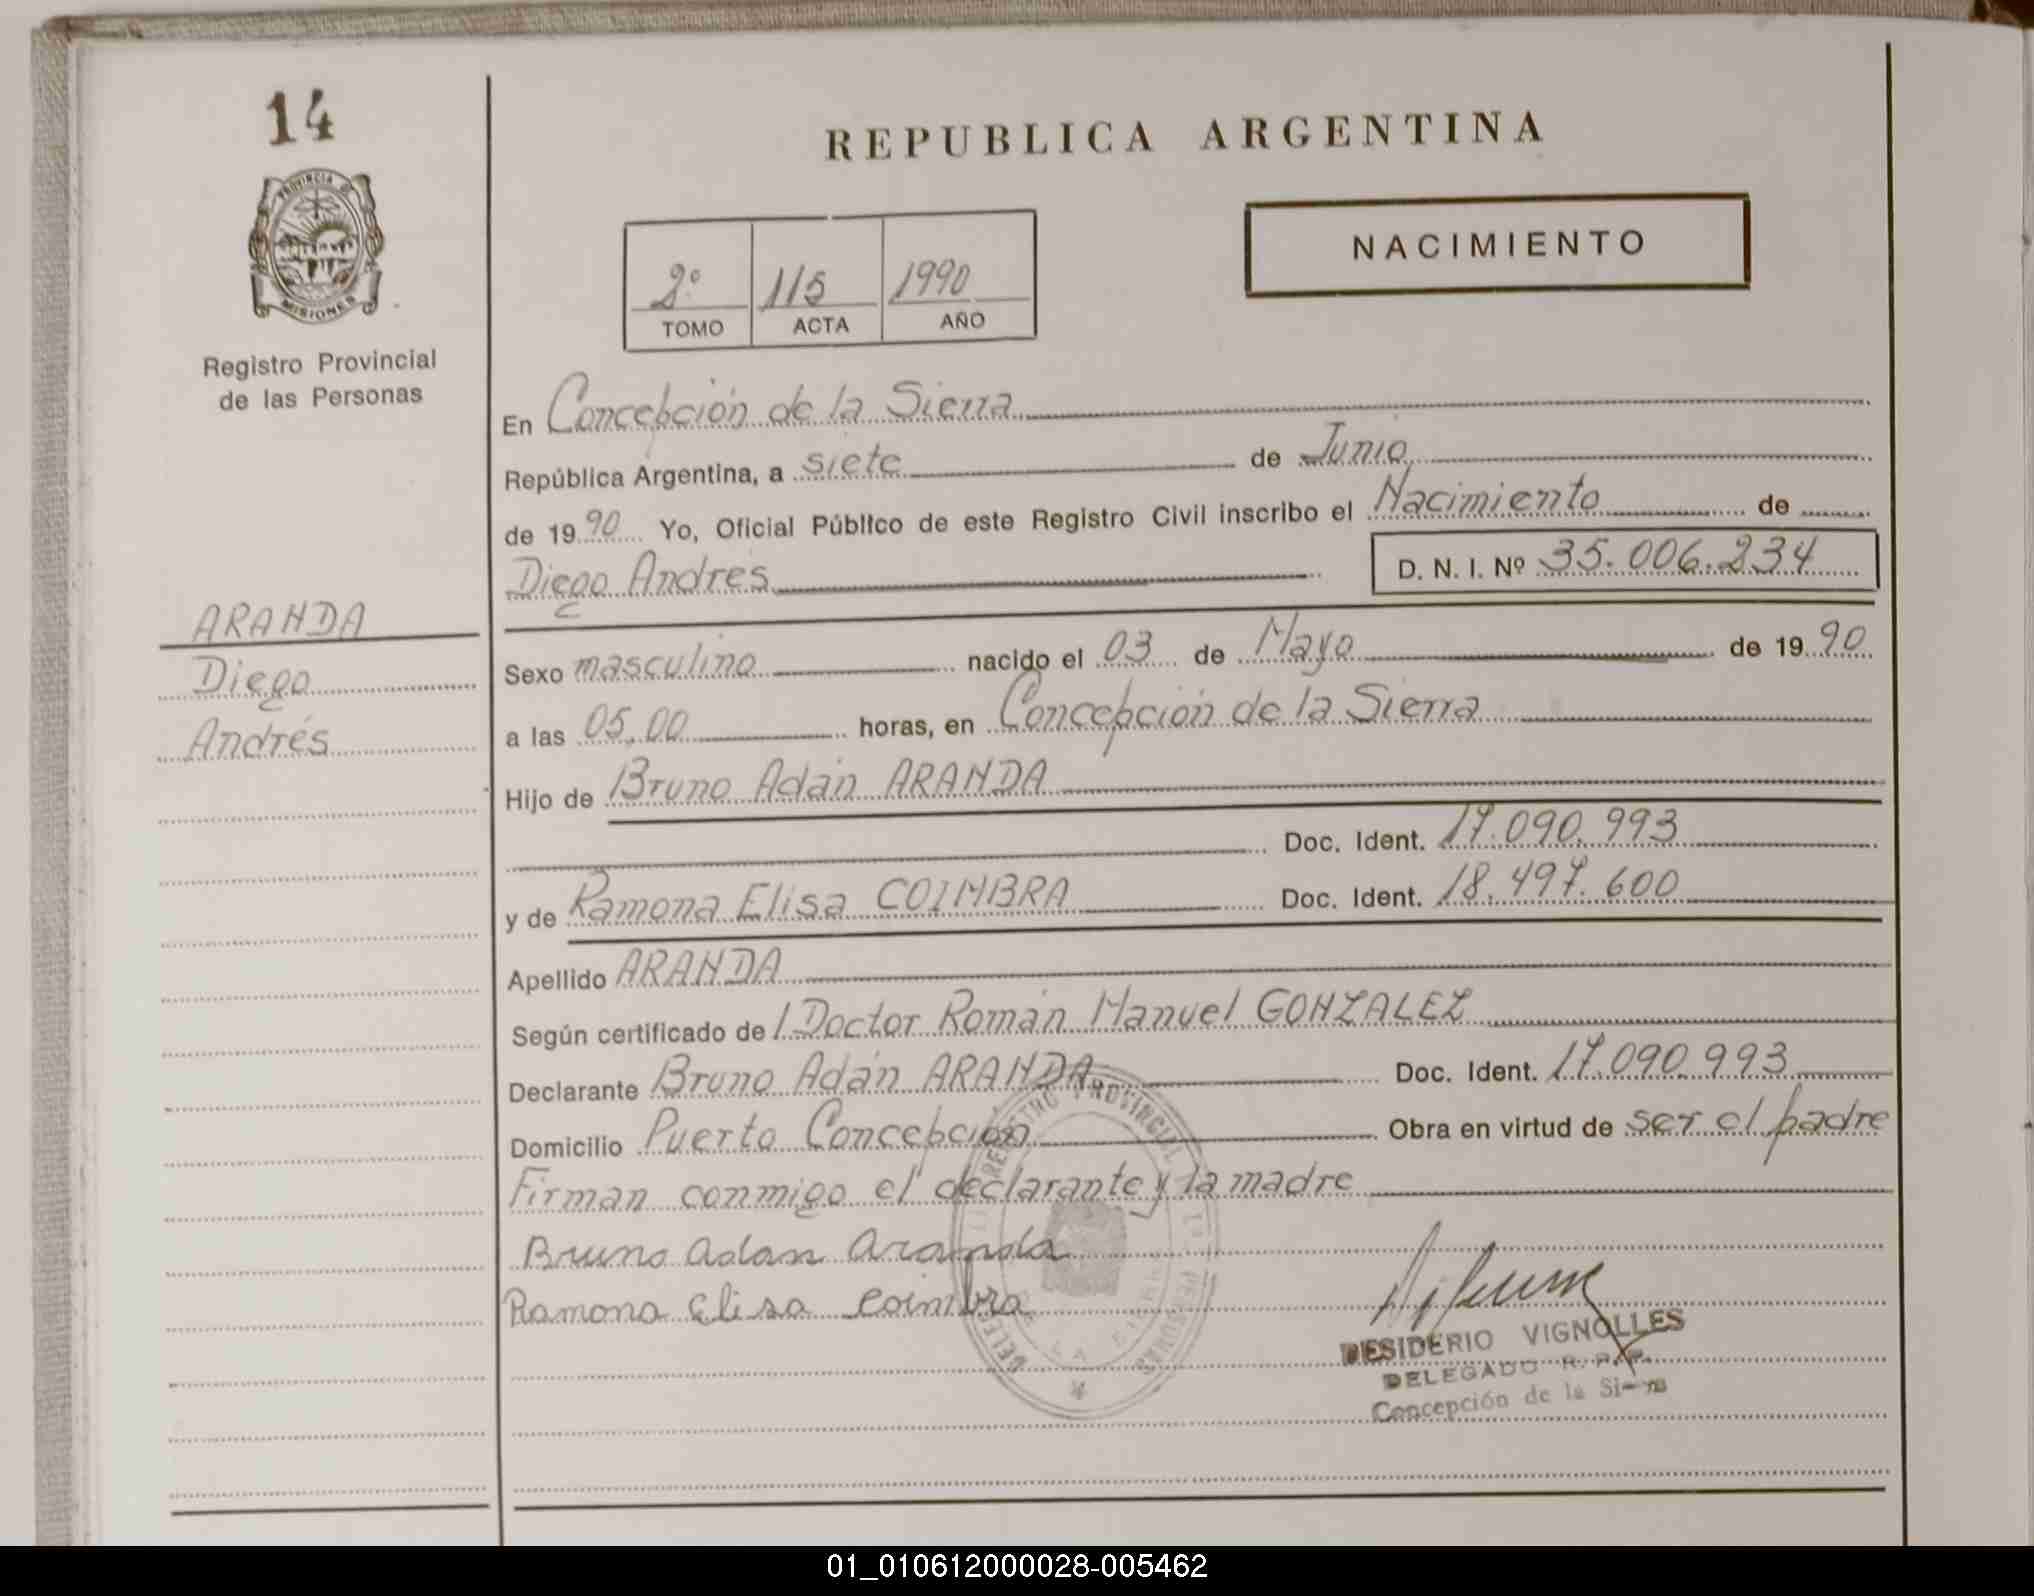 14
PROVINCIA DE
MISIONES
Registro Provincial
de las Personas
ARANDA
Diego
Andrés
REPUBLICA ARGENTINA
NACIMIENTO
2º 115 1990
TOMO ACTA AÑO
En Concepción de la Sierra
República Argentina, a siete de Junio
de 1990 Yo, Oficial Público de este Registro Civil inscribo el Nacimiento de
Diego Andrés D. N. I. Nº 35.006.234
Sexo masculino nacido el 03 de Mayo de 1990
a las 05,00 horas, en Concepción de la Sierra
Hijo de Bruno Adán ARANDA
Doc. Ident. 17.090.993
y de Ramona Elisa COIMBRA Doc. Ident. 18.497.600
Apellido ARANDA
Según certificado del Doctor Román Manuel GONZALEZ
Declarante Bruno Adán ARANDA Doc. Ident. 17.090.993
Domicilio Puerto Concepción Obra en virtud de ser el padre
Firman conmigo el declarante y la madre
Bruno Adan Aranda
Ramona Elisa Coimbra
REGISTRO PROVINCIAL DE LAS PERSONAS
DESIDERIO VIGNOLLES
DELEGADO R. P. P.
Concepción de la Sierra
01_010612000028-005462